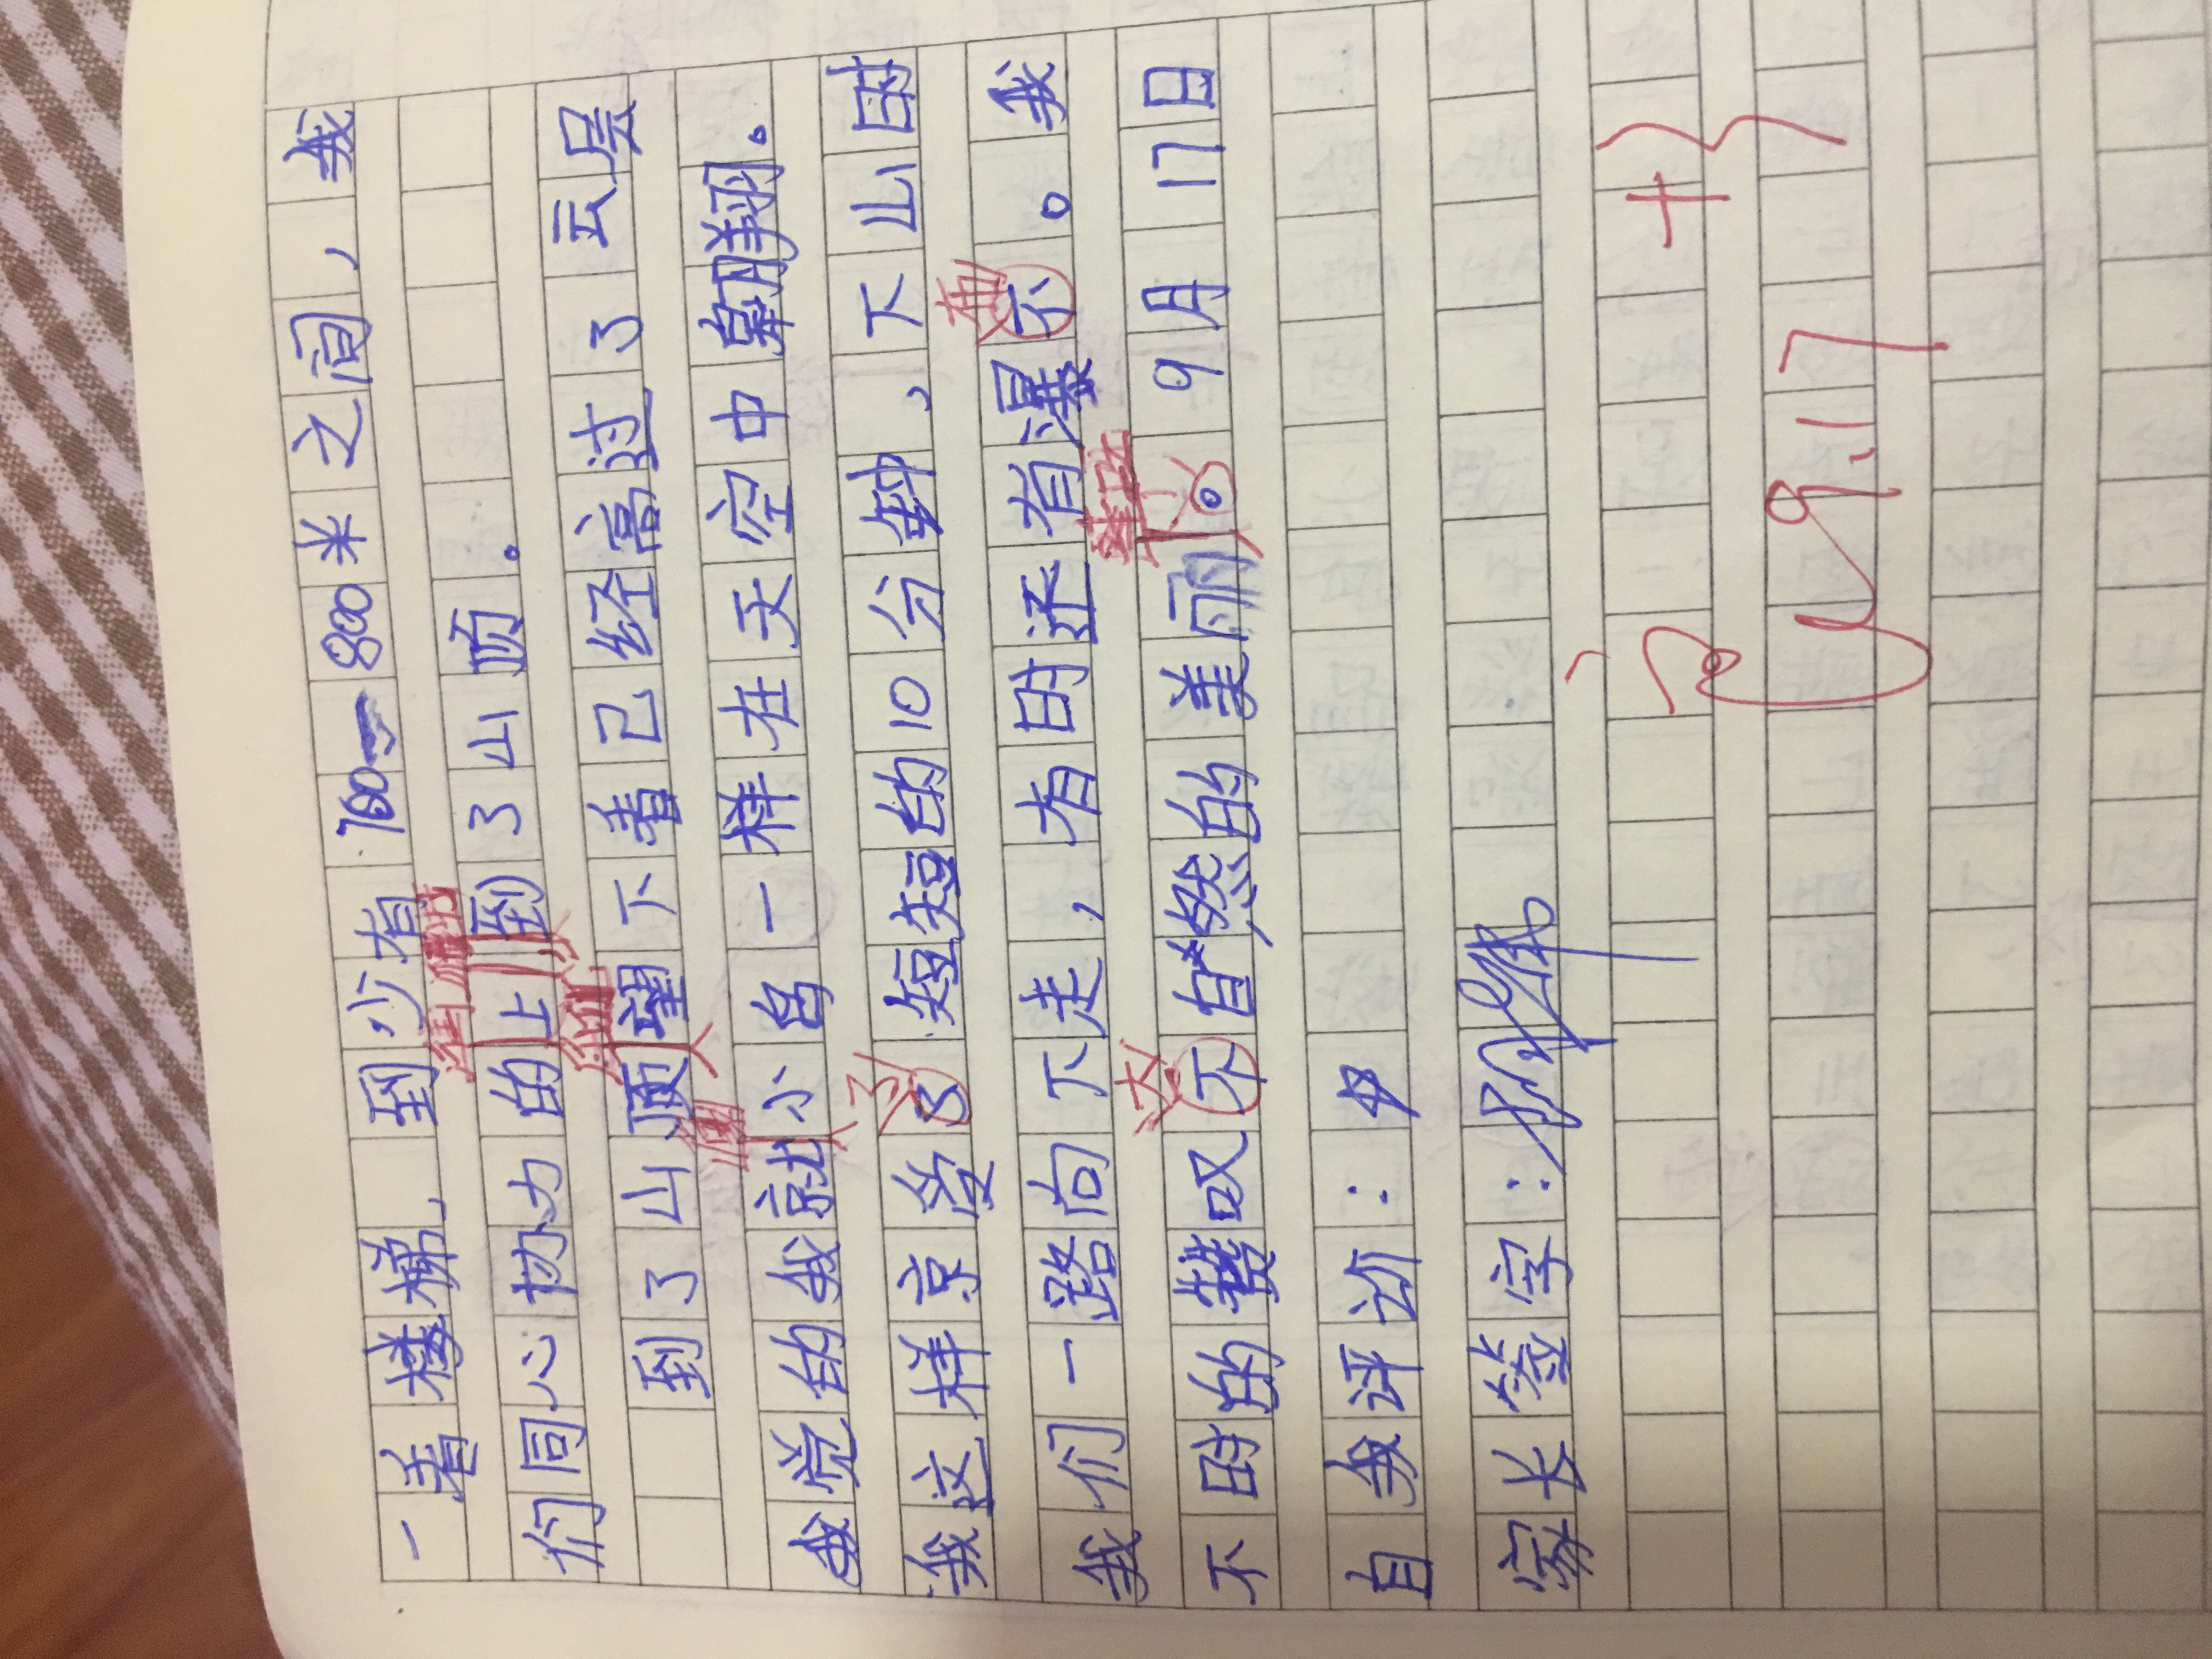 一着楼梯、到少有700—800米之间，我
们同心协力的上到了山顶。
到了山顶望下看已经高过了云层
我觉的我就小鸟一样在天空中翱翔。
我这样享受8短短的10分钟，下山时
我们一路向下走，有时还有瀑不。我
不时的赞叹不自然的美丽。9月17日
自我评价：
家长签字：
9.17